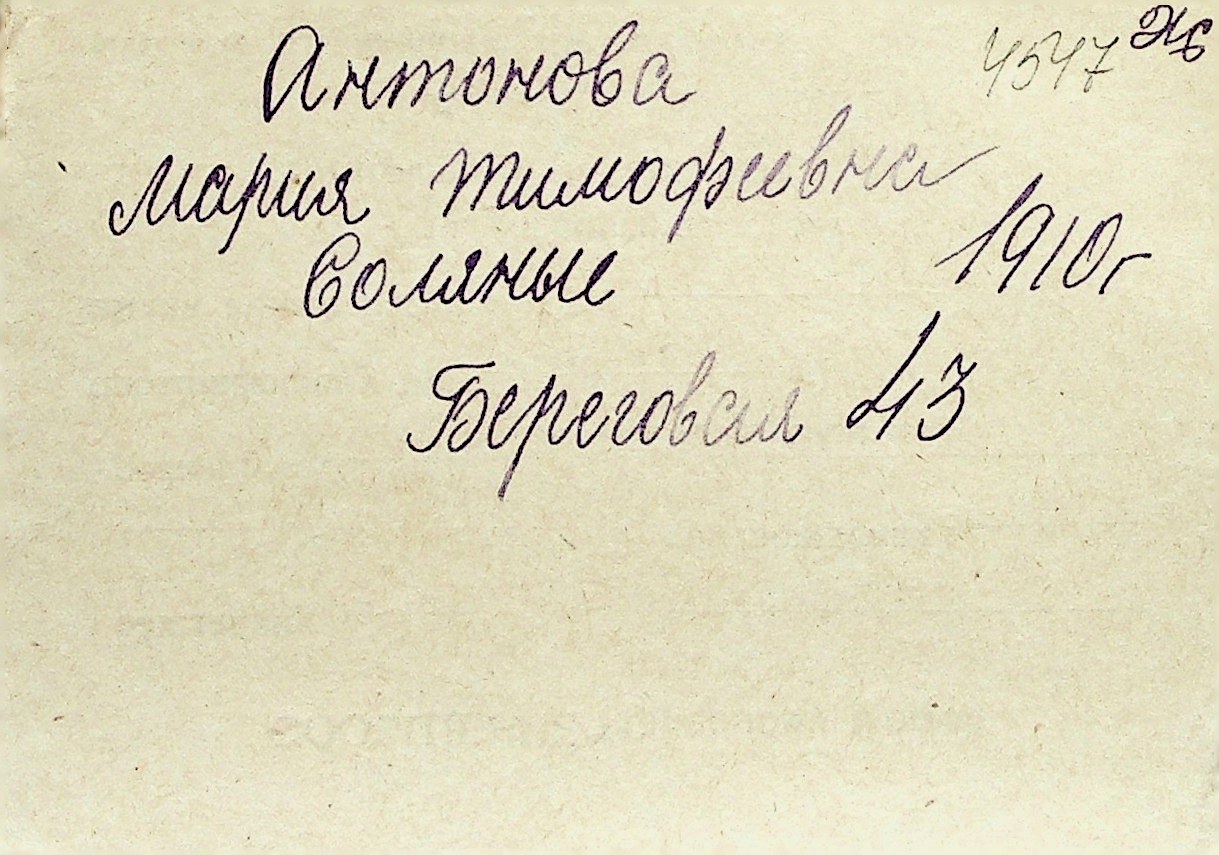 4547
Антонова
Мария Тимофеевна
Соляные 1910г
Береговая 43